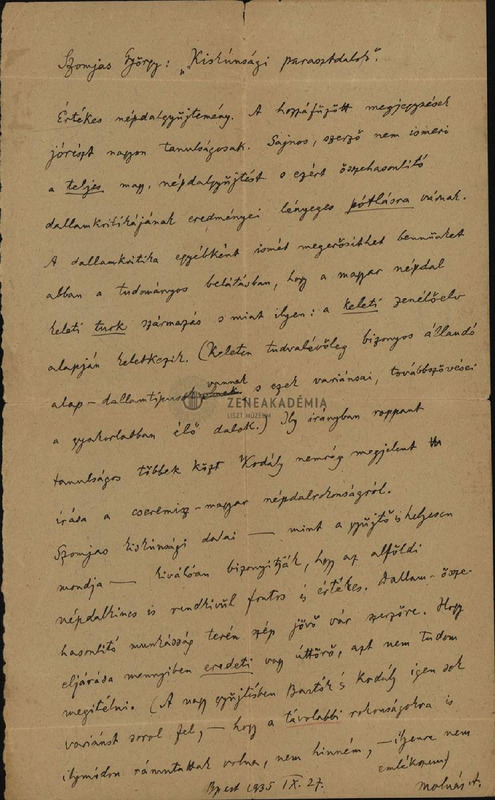 Szomjas György: „Kiskúnsági parasztdalok".
Értékes népdalgyűjtemény. A hozzáfűzött megjegyzések
jórészt nagyon tanulságosak. Sajnos, szerző nem ismeri
a teljes magy. népdalgyűjtést s ezért összehasonlító
dallamkritikájának eredményei lényeges pótlásra várnak.
A dallamkritika egyébként ismét megerősíthet bennünket
abban a tudományos belátásban, hogy a magyar népdal
keleti turk származás s mint ilyen: a keleti zenélőelv
alapján keletkezik. (Keleten tudvalévőleg bizonyos állandó
alap-dallamtípusok vannak s ezek variánsai, továbbszövései
ZENEAKADÉMIA
LISZT MÚZEUM
a gyakorlatban élő dalok.) Ily irányban roppant
tanulságos többek közt Kodály nemrég megjelent
írása a cseremisz-magyar népdalrokonságról.
Szomjas kiskúnsági dalai — mint a gyűjtő is helyesen
mondja — kiválóan bizonyítják, hogy az alföldi
népdalkincs is rendkívül fontos és értékes. Dallam-össze-
hasonlító munkásság terén szép jövő vár szerzőre. Hogy
eljárása mennyiben eredeti vagy úttörő, azt nem tudom
megítélni. (A nagy gyűjtésben Bartók s Kodály igen sok
variánst sorol fel, — hogy a távolabbi rokonságokra is
ilymódon rámutattak volna, nem hinném, — ilyenre nem
emlékszem)
Bpest 1935 IX. 27.
Molnár A.